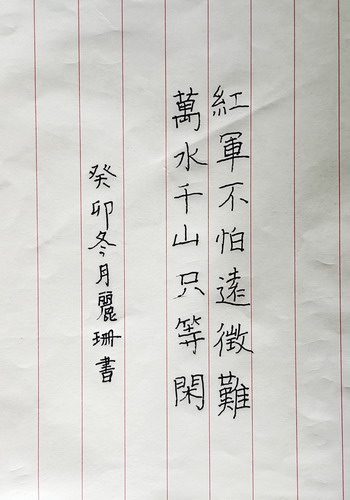 紅軍不怕遠徵難
萬水千山只等閑
癸卯冬月麗珊書